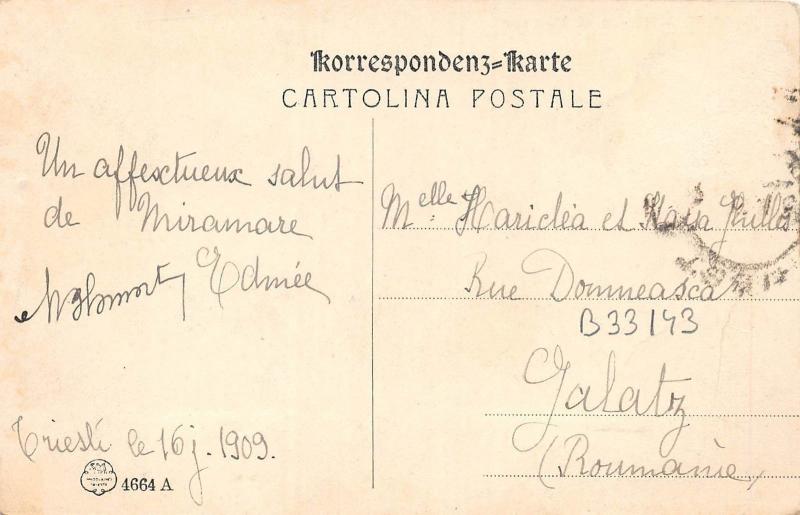 Korrespondenz=Karte
CARTOLINA POSTALE
Un affectueux salut
de Miramare
Edmée
Trieste le 16 j. 1909.
4664 A
Melle: Haricléa et
Rue Domneasca
B33143
Galatz
(Roumanie)